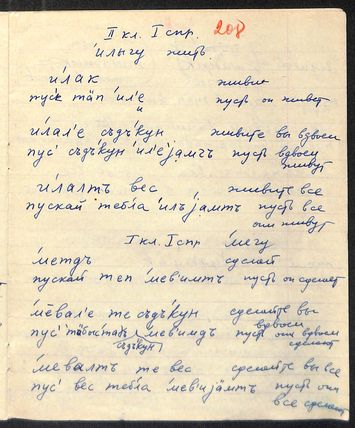 II кл. I спр. 208
и́лыгу жить
и́лак живи
пус́к тап и́л'е пусть он живет
и́лал'е съдъ́кун живите вы вдвоем
пус' съдъ́кун и́л'е̄jамгъ пусть вдвоем
живут
и́лалтъ вес живите все
пускай тебла и́лъjамтъ пусть все
они живут
I кл. I спр. ме́гу
ме́тдъ сделай
пускай теп ме́вимтъ пусть он сделает
ме́вал'е те съдъ́кун сделайте вы
вдвоем
пус' ме́вимдъ пусть они вдвоем
съдъ́кун сделают
ме́валтъ те вес сделайте вы все
пус' вес тебла ме́виjамтъ пусть они
все сделают